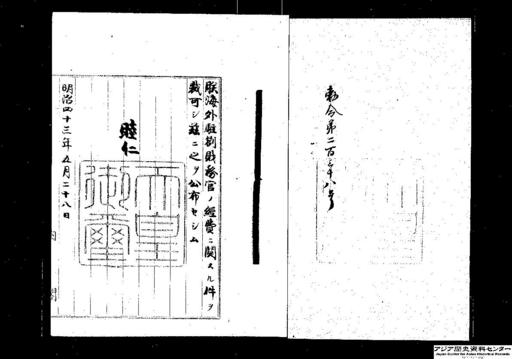 勅令第二百三十八号
朕海外駐剳財務官ノ經費ニ関スル件ヲ
裁可シ茲ニ之ヲ公布セシム
睦仁
天皇
御璽
明治四十三年五月二十八日
内閣
アジア歴史資料センター
Japan Center for Asian Historical Records